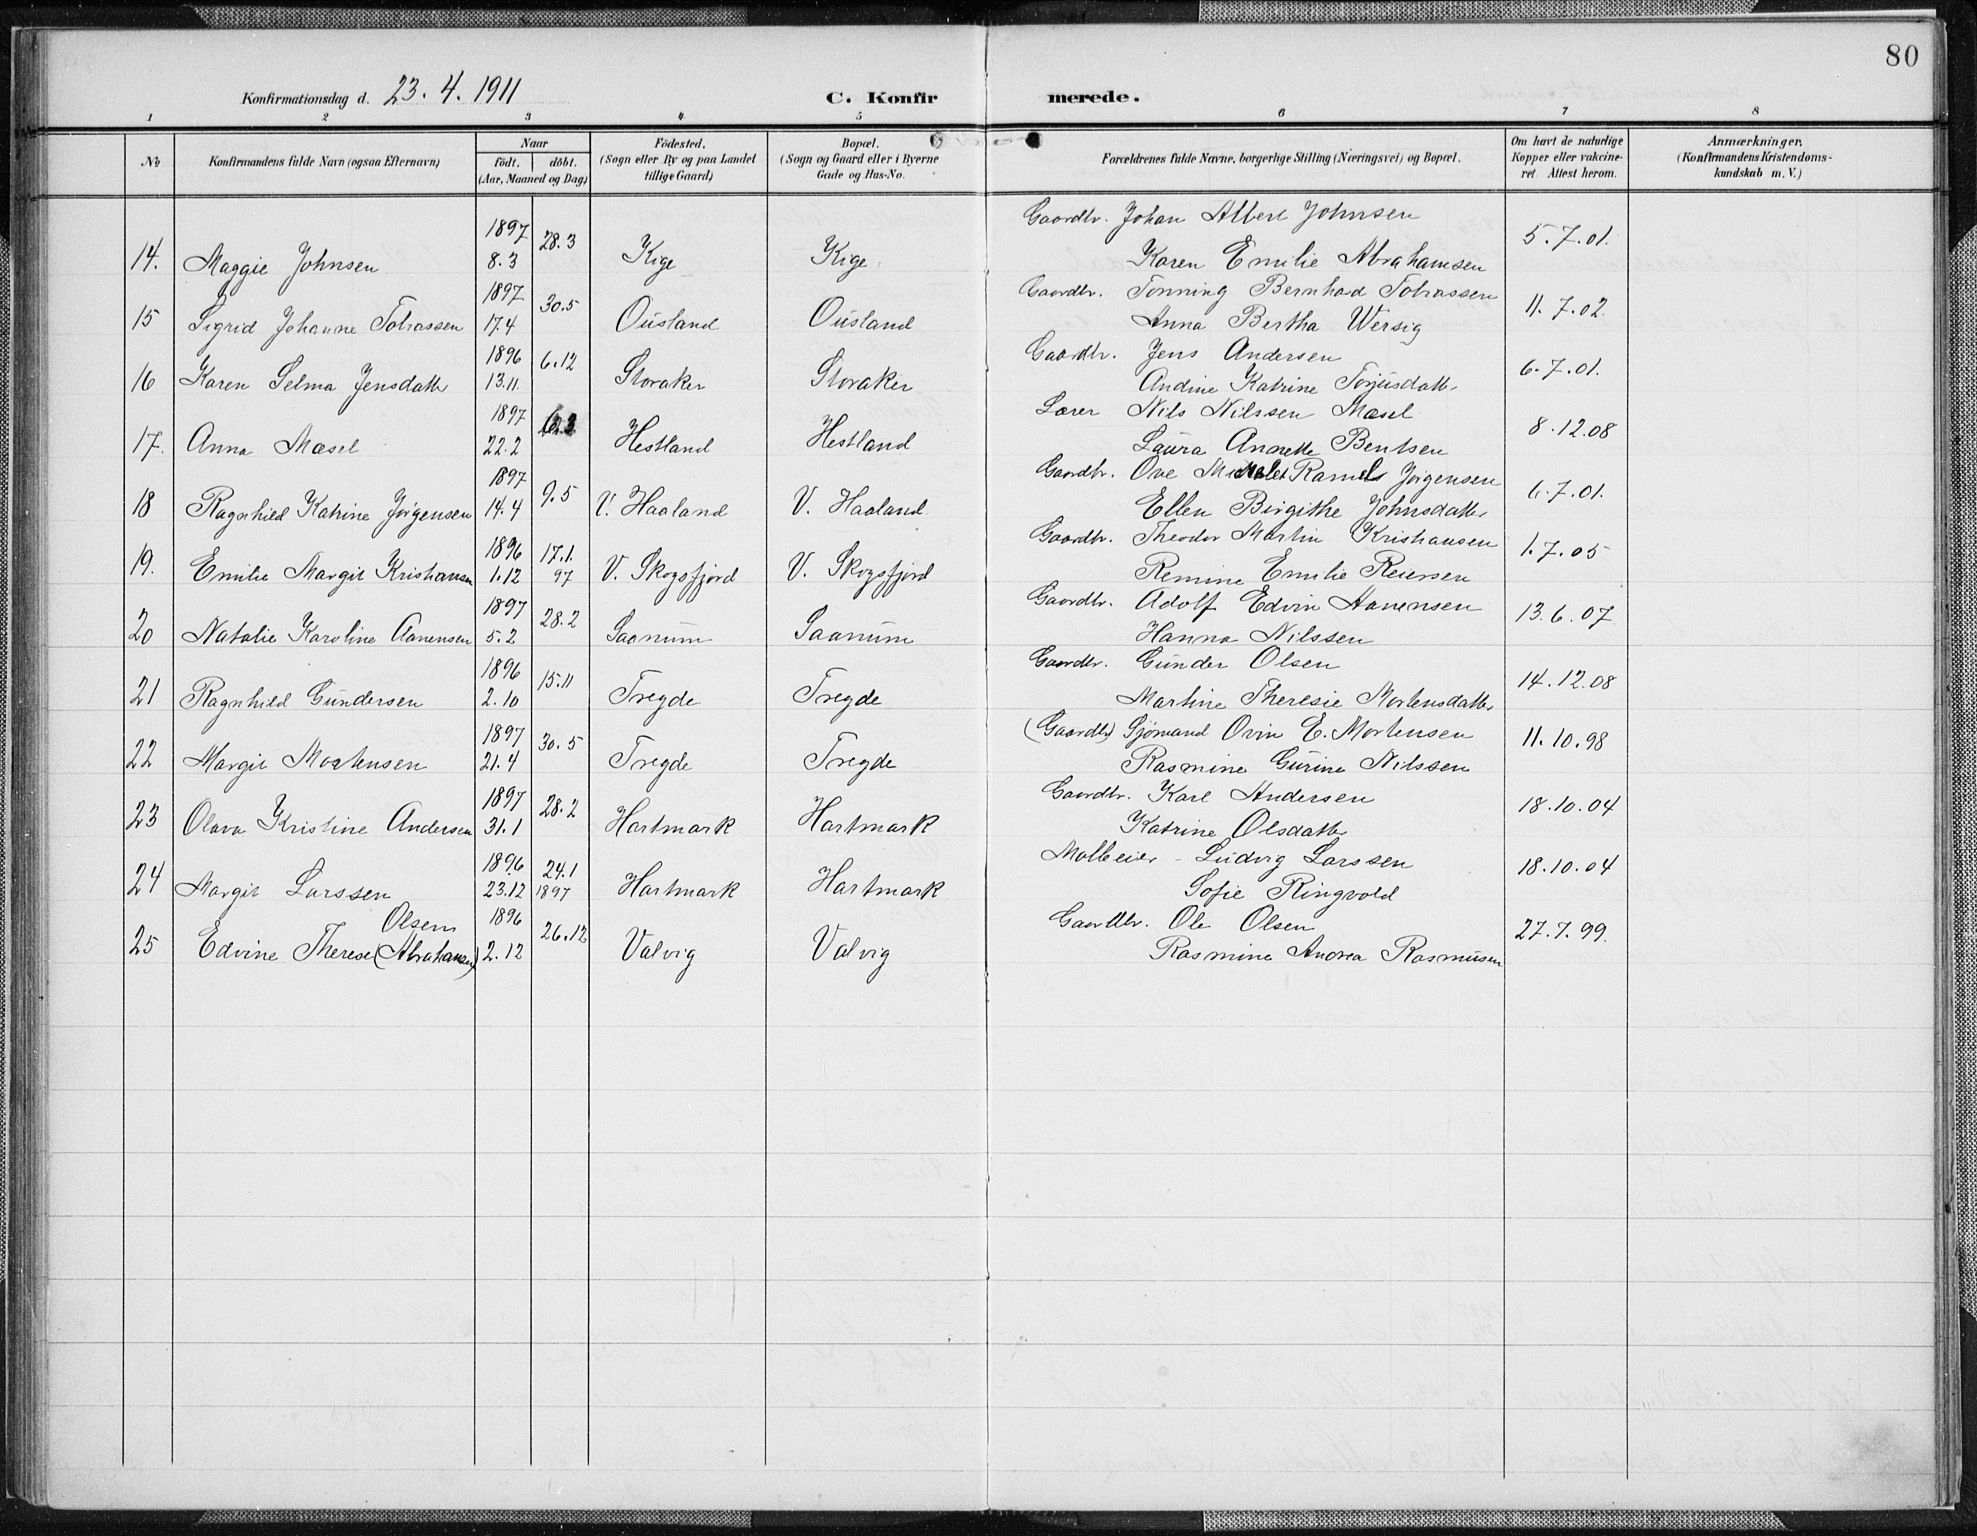 80
Konfirmationsdag d. 23. 4. 1911 C. Konfirmerede.
1 2 3 4 5 6 7 8
No. Konfirmandens fulde Navn (ogsaa Efternavn) Naar födt. döbt. (Aar, Maaned og Dag) Födested. (Sogn eller By og paa Landet tillige Gaard) Bopæl. (Sogn og Gaard eller i Byerne Gade og Hus-No. Forældrenes fulde Navne, borgerlige Stilling (Næringsvei) og Bopæl. Om havt de naturlige Kopper eller vakcineret. Attest herom. Anmærkninger. (Konfirmandens Kristendomskundskab m. V.)
1897 28.3 Gaardbr. Johan Albert Johnsen 5.7.01.
14. Maggie Johnsen 8.3 Kige Kige Karen Emilie Abrahamsen
1897 30.5 Gaardbr. Tønning Bernhard Tobiassen 11.7.02.
15 Sigrid Johanne Tobiassen 17.4 Ousland Ousland Anna Bertha Wersig
1896 6.12 Gaardbr. Jens Andersen 6.7.01.
16 Karen Selma Jensdatter 13.11. Storaker Storaker Andine Katrine Torjusdatter
1897 Lærer Nils Nilssen Mæsel 8.12.08
17. Anna Mæsel 22.2 Hestland Hestland Laura Annette Bentsen
1897 9.5 Gaardbr. Ove Jørgensen 6.7.01.
18 Ragnhild Katrine Jørgensen 14.4 V. Haaland V. Haaland Ellen Birgithe Johnsdatter
1896 17.1. Gaardbr. Theodor Martin Kristiansen 1.7.05
19. Emilie Margit Kristiansen 1.12 97 V. Skogsfjord V. Skogsfjord Remine Emilie Reiersen
1897 28.2 Gaardbr. Adolf Edvin Aanensen 13.6.07
20 Natalie Karoline Aanensen 5.2 Saanum Saanum Hanna Nilssen
1896 15.11 Gaardbr. Gunder Olsen 14.12.08
21 Ragnhild Gundersen 2.10 Tregde Tregde Martine Theresie Mortensdatter
1897 30.5 (Gaardbr) Sjømand Ovin E. Mortensen 11.10.98
22 Margit Mortensen 21.4 Tregde Tregde Rasmine Gurine Nilssen
1897 28.2 Gaardbr. Karl Andersen 18.10.04
23 Olava Kristine Andersen 31.1 Hartmark Hartmark Katrine Olsdatter
1896 24.1 Ludvig Larssen 18.10.04
24 Margit Larssen 23.12 1897 Hartmark Hartmark Sofie Ringvold
Olsen 1896 26.12 Gaardbr. Ole Olsen 27.7.99.
25 Edvine Therese (Abrahamsen) 2.12 Valvig Valvig Rasmine Andrea Rasmussen